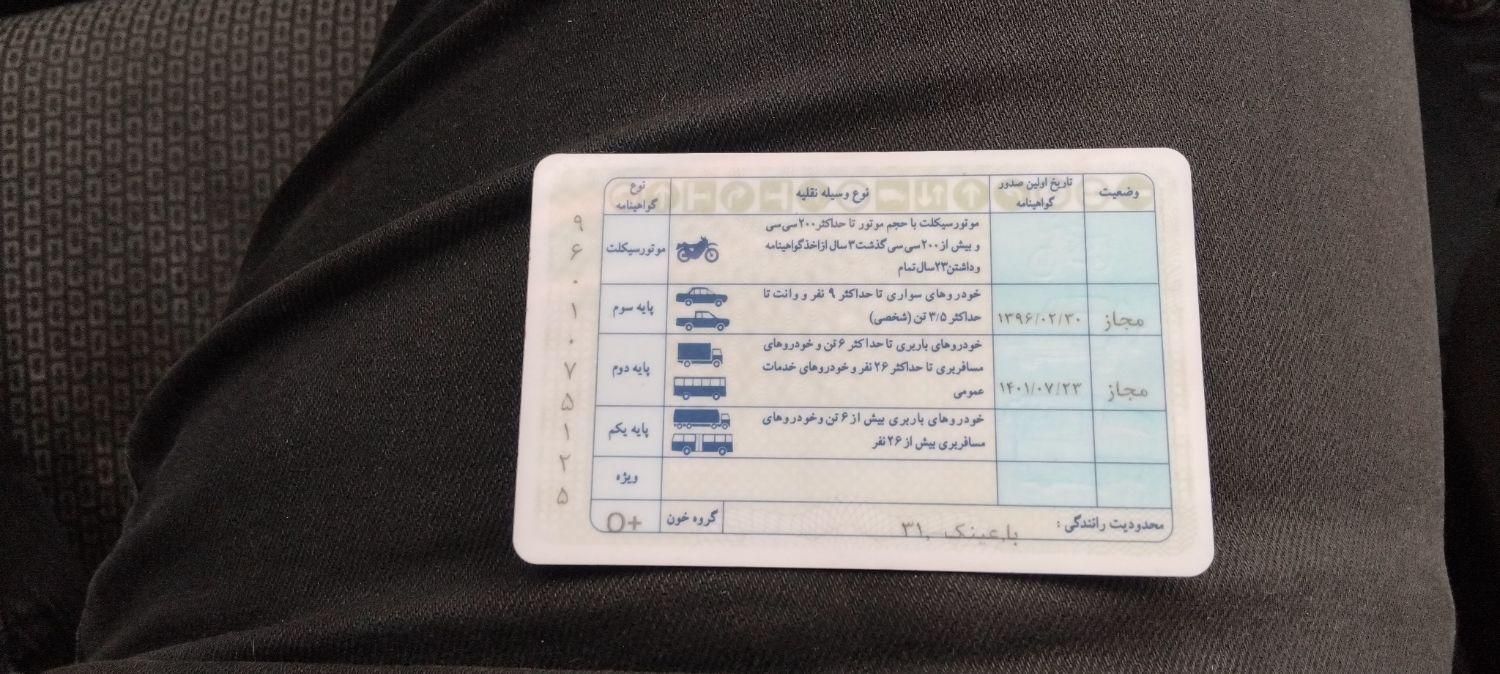 وضعیت
تاریخ اولین صدور گواهینامه
نوع وسیله نقلیه
نوع گواهینامه
موتورسیکلت با حجم موتور تا حداکثر ۲۰۰ سی سی
و بیش از ۲۰۰ سی سی گذشت ۳ سال از اخذ گواهینامه
و داشتن ۲۳ سال تمام
موتورسیکلت
مجاز
۱۳۹۶/۰۲/۳۰
خودروهای سواری تا حداکثر ۹ نفر و وانت تا
حداکثر ۳/۵ تن (شخصی)
پایه سوم
مجاز
۱۴۰۱/۰۷/۲۳
خودروهای باربری تا حداکثر ۶ تن و خودروهای
مسافربری تا حداکثر ۲۶ نفر و خودروهای خدمات
عمومی
پایه دوم
خودروهای باربری بیش از ۶ تن و خودروهای
مسافربری بیش از ۲۶ نفر
پایه یکم
ویژه
محدودیت رانندگی : باعینک ۳۱,
گروه خون
O+
۹۶۰۱۰۷۵۱۲۵